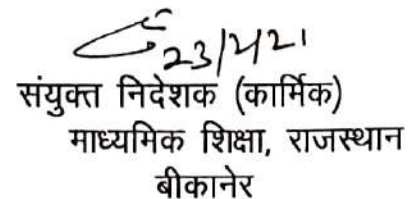 23/4/21
संयुक्त निदेशक (कार्मिक)
माध्यमिक शिक्षा, राजस्थान
बीकानेर